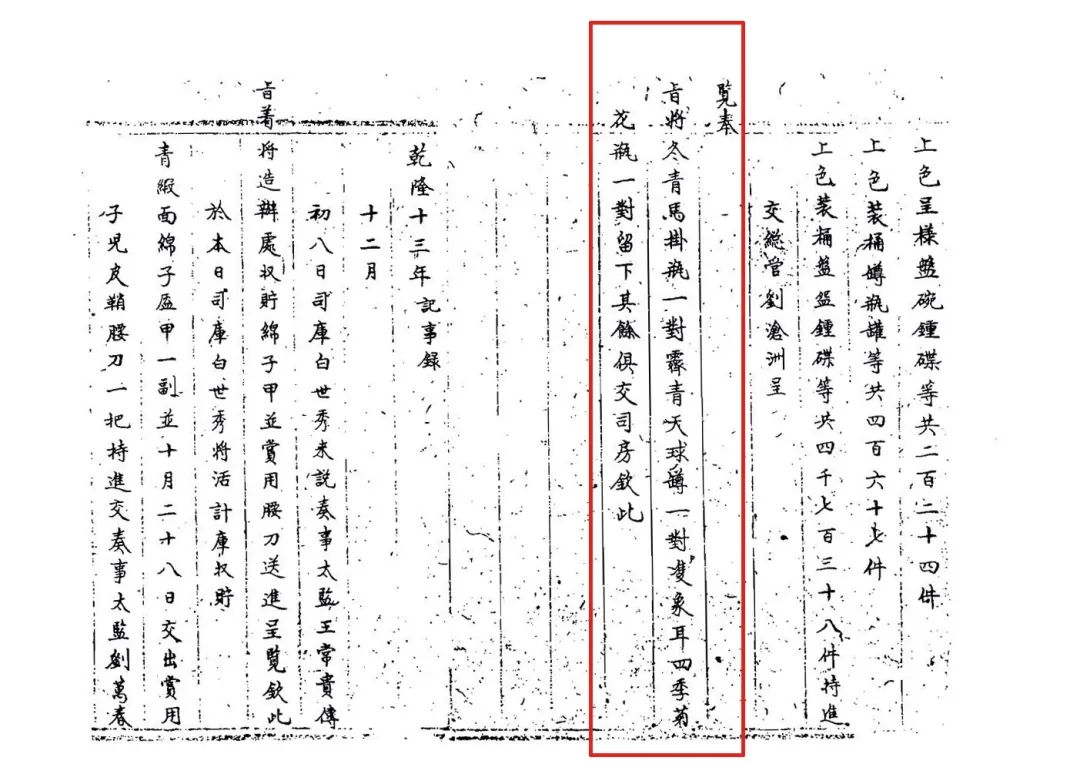 上色呈樣盤碗鍾碟等共二百二十四件
上色裝桶罇瓶罐等共四百六十七件
上色裝桶盤盌鍾碟等共四千七百三十八件持進
交總管劉滄洲呈
覽奉
旨將冬青馬掛瓶一對霽青天球罇一對雙象耳四季菊
花瓶一對留下其餘俱交司房欽此
乾隆十三年記事録
十二月
初八日司庫白世秀来説奏事太監王常貴傳
旨著將造辦處収貯綿子甲並賞用腰刀送進呈覽欽此
於本日司庫白世秀將活計庫収貯
青緞面綿子盔甲一副並十月二十八日交出賞用
子児皮鞘腰刀一把持進交奏事太監劉萬春